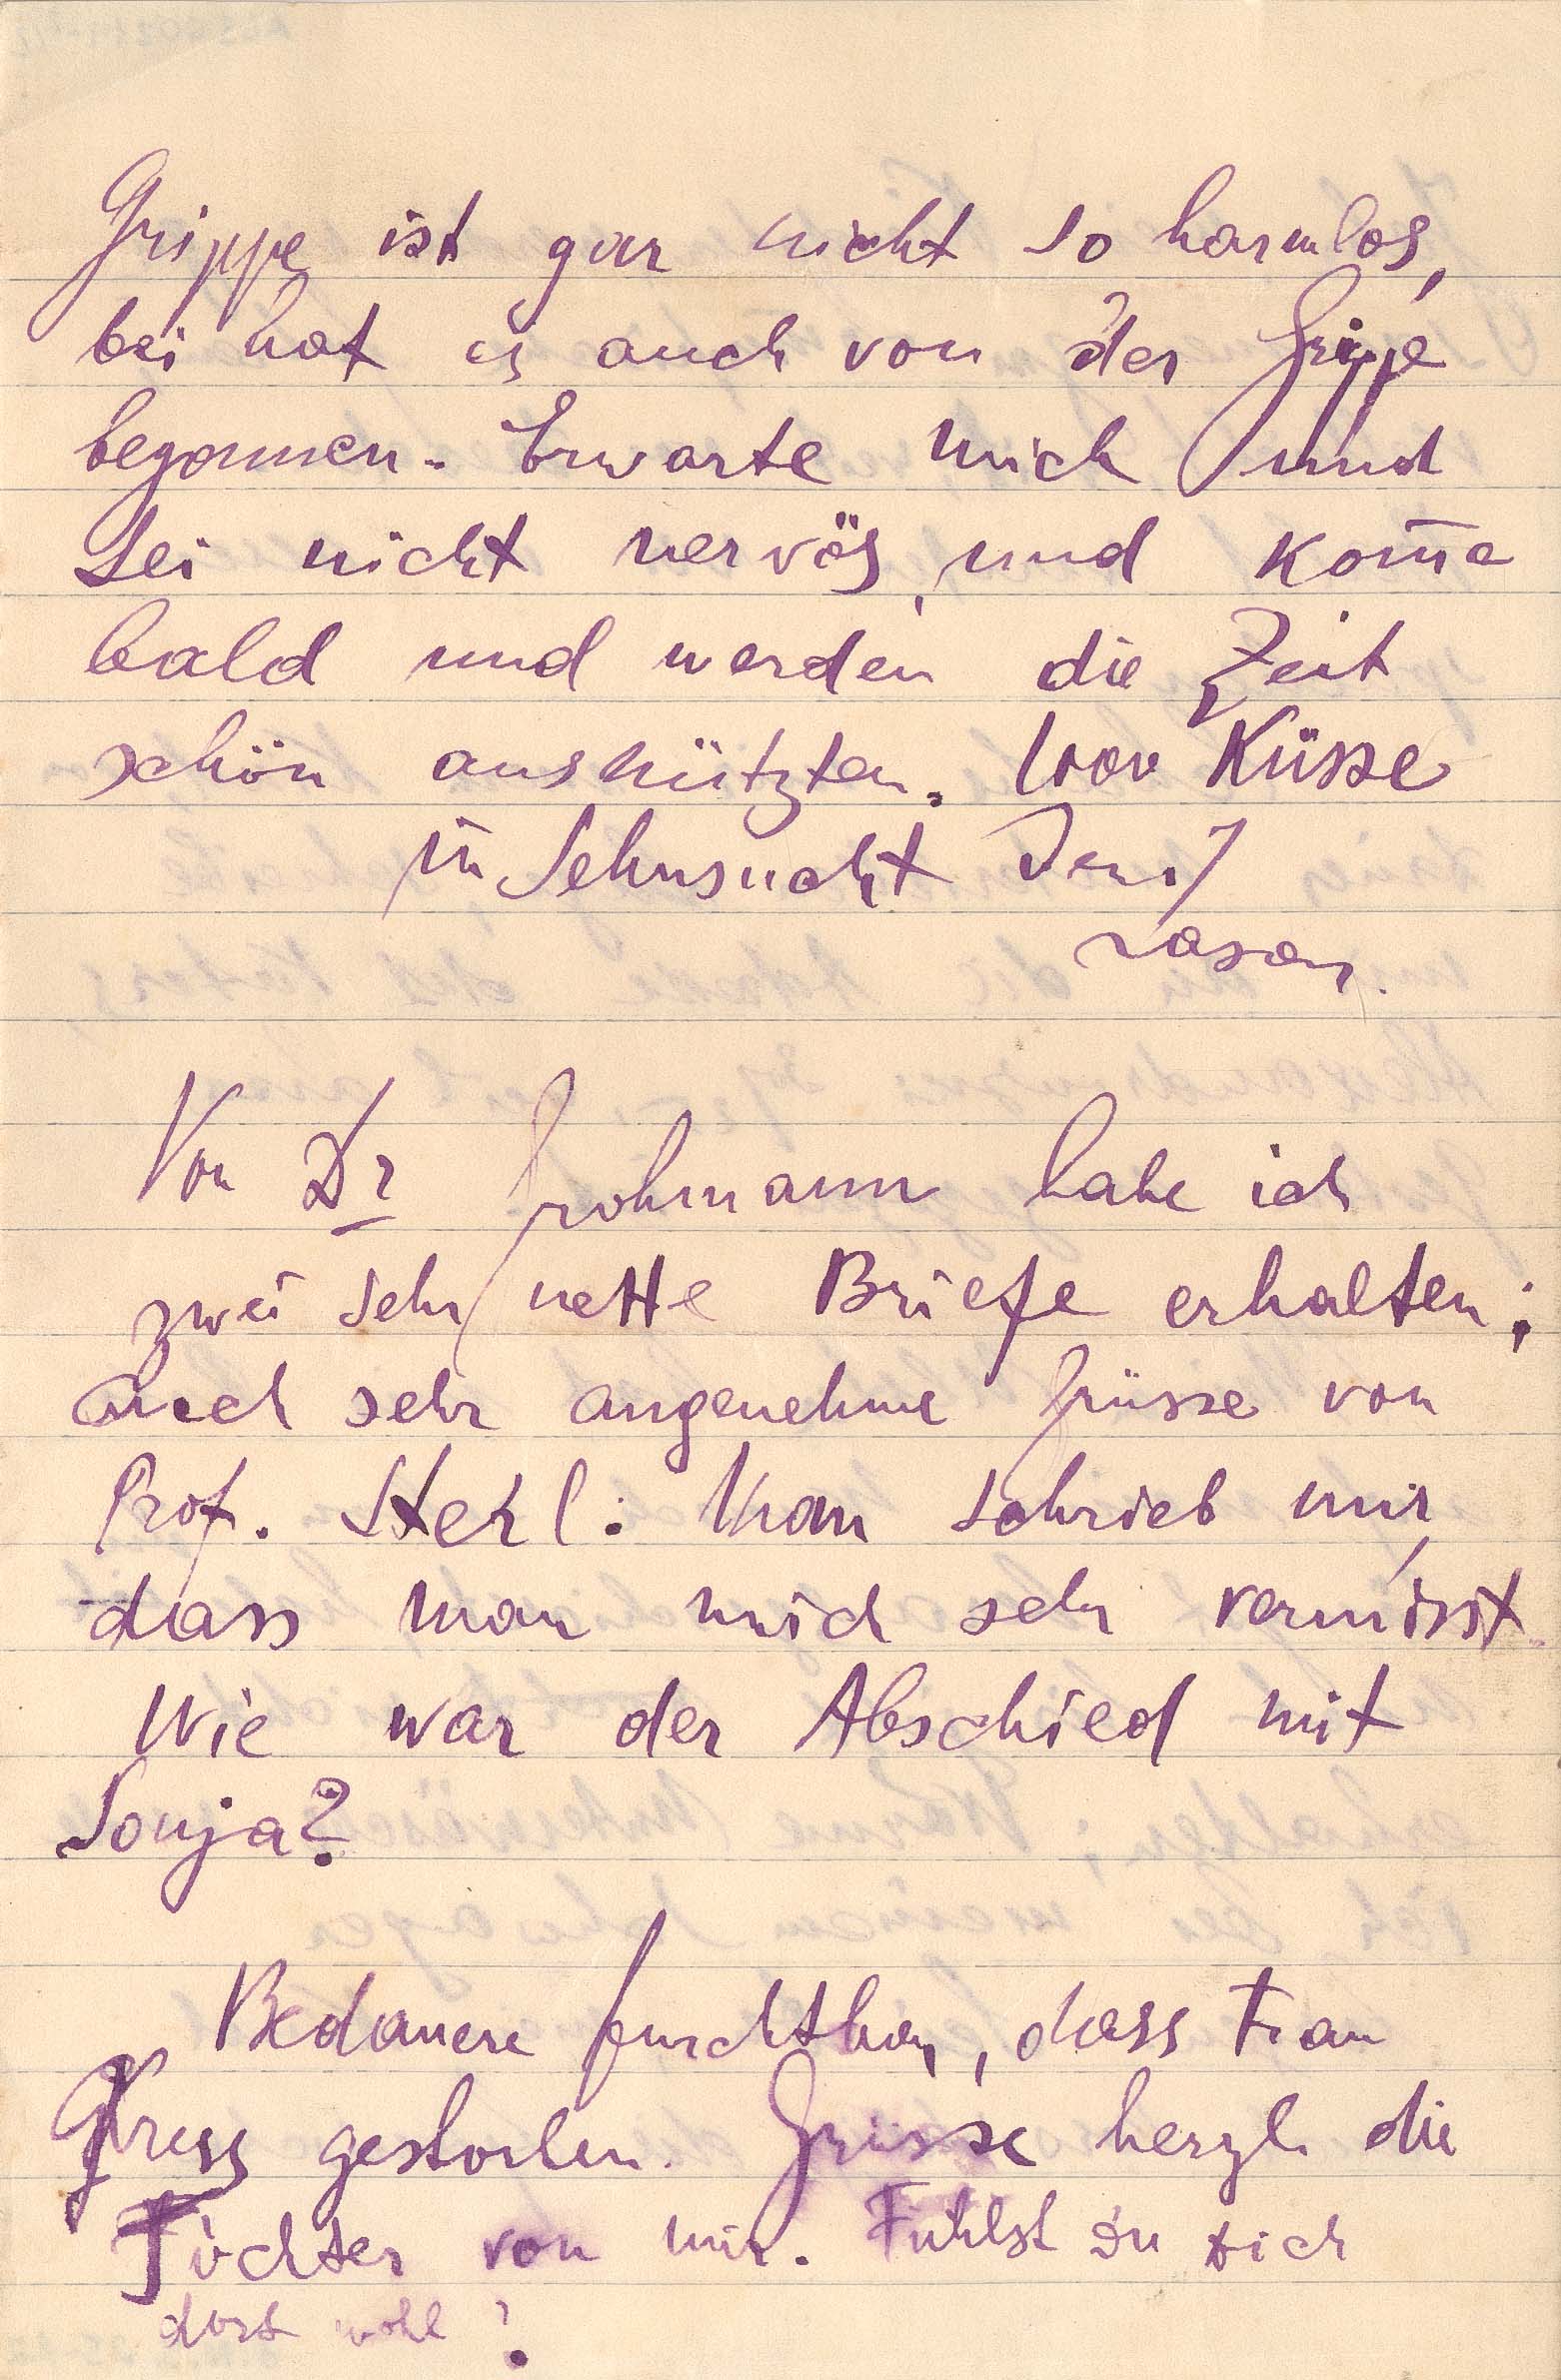 Grippe ist gar nicht so harmlos,
bei hat es auch von der Grippe
begonnen. Erwarte mich und
Sei nicht nervös, und kom̄e
bald und werden die Zeit
schön ausnützten. 1000 Küsse
in Sehnsucht Dein
Lasar.
Von Dr Grohmann habe ich
zwei sehr nette Briefe erhalten;
auch sehr angenehme Grüsse von
Prof. Sterl: Man schrieb mir,
dass man mich sehr vermisst.
Wie war der Abschied mit
Sonja?
Bedauere furchtbar, dass Frau
gestorben. Grüsse herzl. die
Töchter von mir. Fühlst du dich
dort wohl?